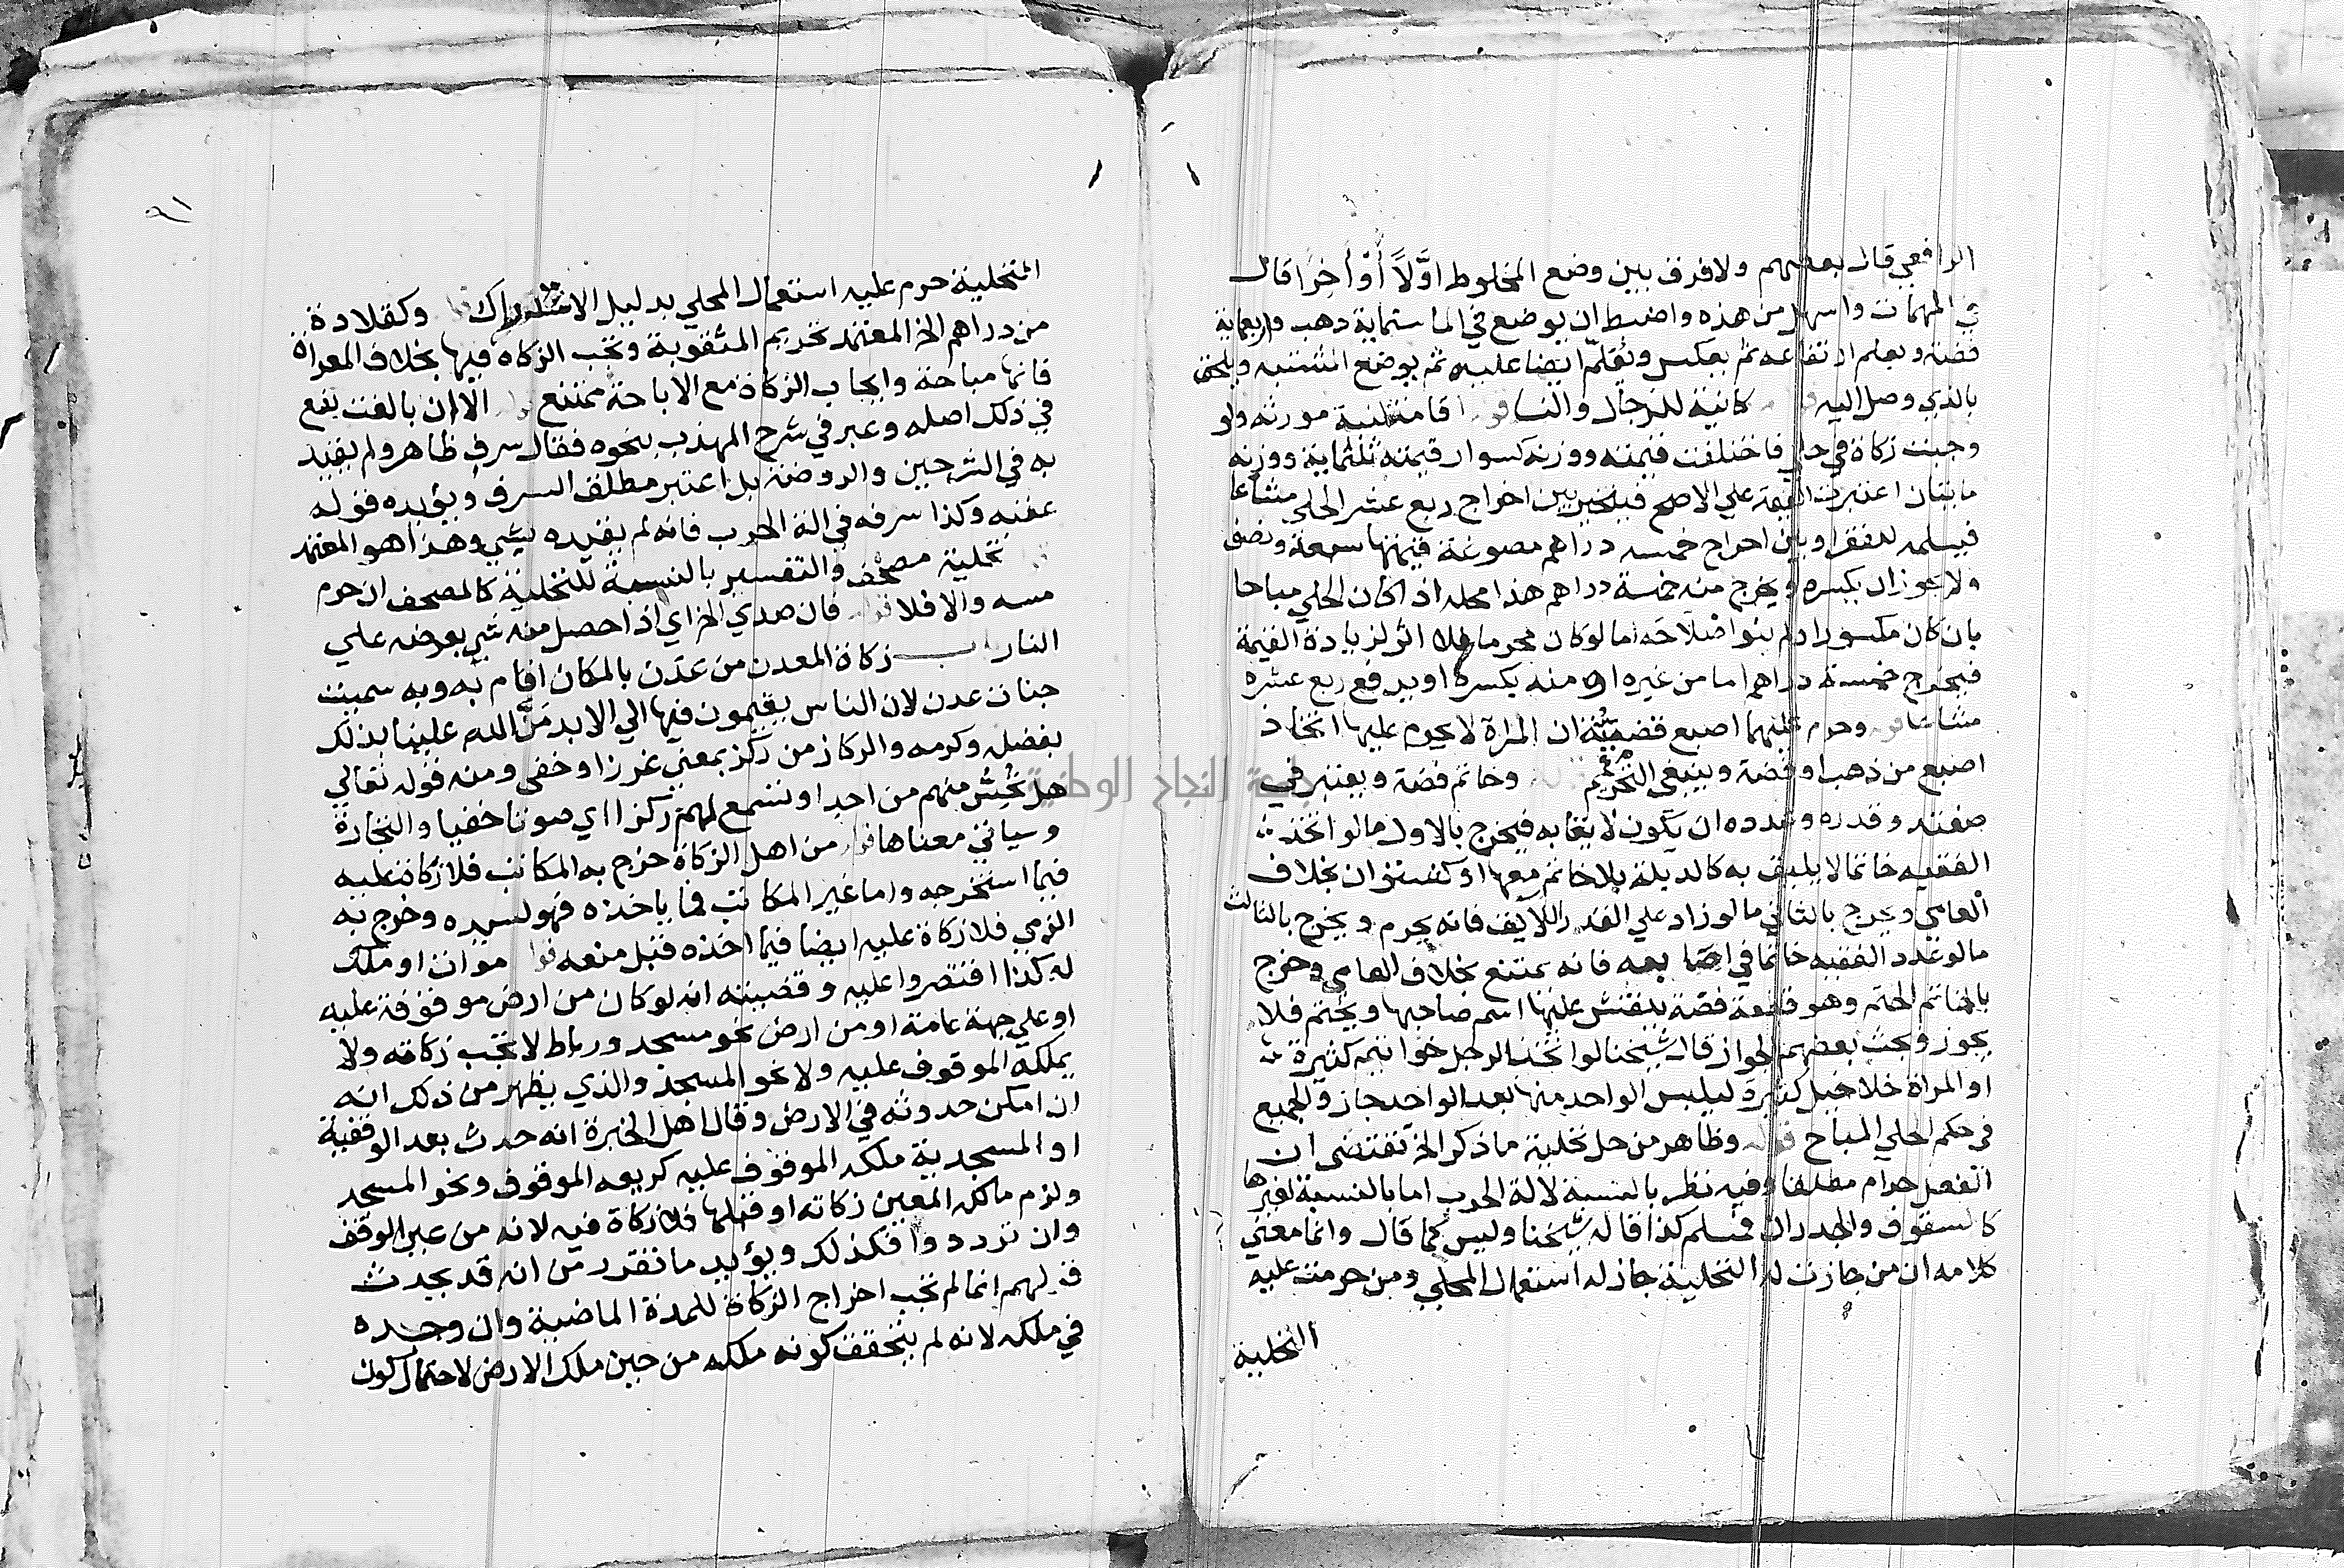 الرافعي قال بعضهم ولا فرق بين وضع المخلوط اوَّلاً أَوْ أَخِرًا قال
في المهمات واسهل من هذه واضبط ان يوضع في الما ستماية ذهب واربعماية
فضة ويعلم ارتفاعه ثم يعكس ويُعَلَّم ايضا عليه ثم يوضع المشتبه ويلحق
بالذي وصل اليه كانية للرجال والنسا مورثه ولو
وجبت زكاة في حلي فاختلفت قيمته ووزنه كسوار قيمته ثلثماية ووزنه
مايتان اعتبرت القيمة علي الاصح فيتخير بين اخراج ربع عشر الحلي مشاعا
فيسلمه للفقرا وبين اخراج خمسه دراهم مصوغة قيمتها سبعة ونصف
ولا يجوز ان يكسره ويخرج منه خمسة دراهم هذا محله اذا كان الحلي مباحا
بان كان مكسورا ولم ينو اصْلاحَه اما لو كان محرما فلا اثر لزيادة القيمة
فيخرج خمسة دراهم اما من غيره او منه بكسره او يدفع ربع عشره
مشاعا قوله وحرم عليهما اصبع قضيته ان المراة لا يحرم عليها اتخاذ
اصبع من ذهب او فضة وينبغي التحريم وخاتم فضة ويعتبر في
صفته وقدره وعدده ان يكون لائقا به فيخرج بالاول ما لو اتخذ
الفقيه خاتما لا يليق به كالدبلة بلا خاتم معها او كفستوان بخلاف
العامي ويخرج بالثاني ما لو زاد علي القدر اللايق فانه يحرم ويخرج بالثالث
ما لو عدد الفقيه خاتما في اصابعه فانه يمتنع بخلاف العامي وخرج
بالخاتم الختم وهو قطعة فضة ينقش عليها اسم صاحبها ويختم فلا
يجوز وبحث بعضهم الجواز قال شيخنا لو اتخذ الرجل خواتيم كثيرة
او المراة خلاخيل كثيرة ليلبس الواحد منها بعد الواحد جاز والجميع
في حكم الحلي المباح قوله وظاهر من حل تحلية ما ذكر الخ تقتضي ان
الفعل حرام مطلقا وفيه نظر بالنسبة لالة الحرب اما بالنسبة لغيرها
كالسقوف والجدران فمسلم كذا قاله شيخنا وليس كما قال وانما معني
كلامه ان من جازت له التحلية جاز له استعمال المحلي ومن حرمت عليه
التحلية
٩١
التحلية حرم عليه استعمال المحلي بدليل الاستدراك وكقلادة
من دراهم الخ المعتمد تحريم المثقوبة وتجب الزكاه فيها بخلاف المعراة
فانها مباحة وايجاب الزكاة مع الاباحة ممتنع قوله الا ان بالغت يقع
في ذلك اصله وعبر في شرح المهذب بنحوه فقال سرف ظاهر ولم يقيد
به في الشرحين والروضة بل اعتبر مطلق السرف ويؤيده قوله
عقبه وكذا سرفه في الة الحرب فانه لم يقيده بشي وهذا هو المعتمد
تحلية مصحف والتفسير بالنسبة للتحلية كالمصحف ان حرم
مسه والا فلا قوله فان صدي الخ اي اذا حصل منه شي بعرضه علي
النار باب زكاة المعدن من عدَن بالمكان اقام به وبه سميت
جنات عدن لان الناس يقيمون فيها الي الابد مَنَّ الله علينا بذلك
بفضله وكرمه والركاز من ركز بمعني غرز او خفي ومنه قوله تعالي
هل تُحِسُّ منهم من احد او تسمع لهم ركزا اي صوتا خفيا والتجارة
وسياتي معناها قوله من اهل الزكاة خرج به المكاتب فلا زكاة عليه
فيما استخرجه واما غير المكاتب فما ياخذه فهو لسيده وخرج به
الذمي فلا زكاة عليه ايضا فيما اخذه قبل منعه قوله موات او ملك
له كذا اقتصروا عليه وقضيته انه لو كان من ارض موقوفة عليه
او علي جهة عامة او من ارض نحو مسجد ورباط لا تجب زكاته ولا
يملكه الموقوف عليه ولا نحو المسجد والذي يظهر من ذلك انه
ان امكن حدوثه في الارض وقال اهل الخبرة انه حدث بعد الوقفية
او المسجدية ملكه الموقوف عليه كريعه الموقوف ونحو المسجد
ولزم مالكه المعين زكاته او قبلها فلا زكاة فيه لانه من عين الوقف
وان ترددوا فكذلك ويؤيد ما تقرر من انه قد يحدث
قولهم انما لم تجب اخراج الزكاة للمدة الماضية وان وجده
في ملكه لانه لم يتحقق كونه ملكه من حين ملك الارض لاحتمال كون